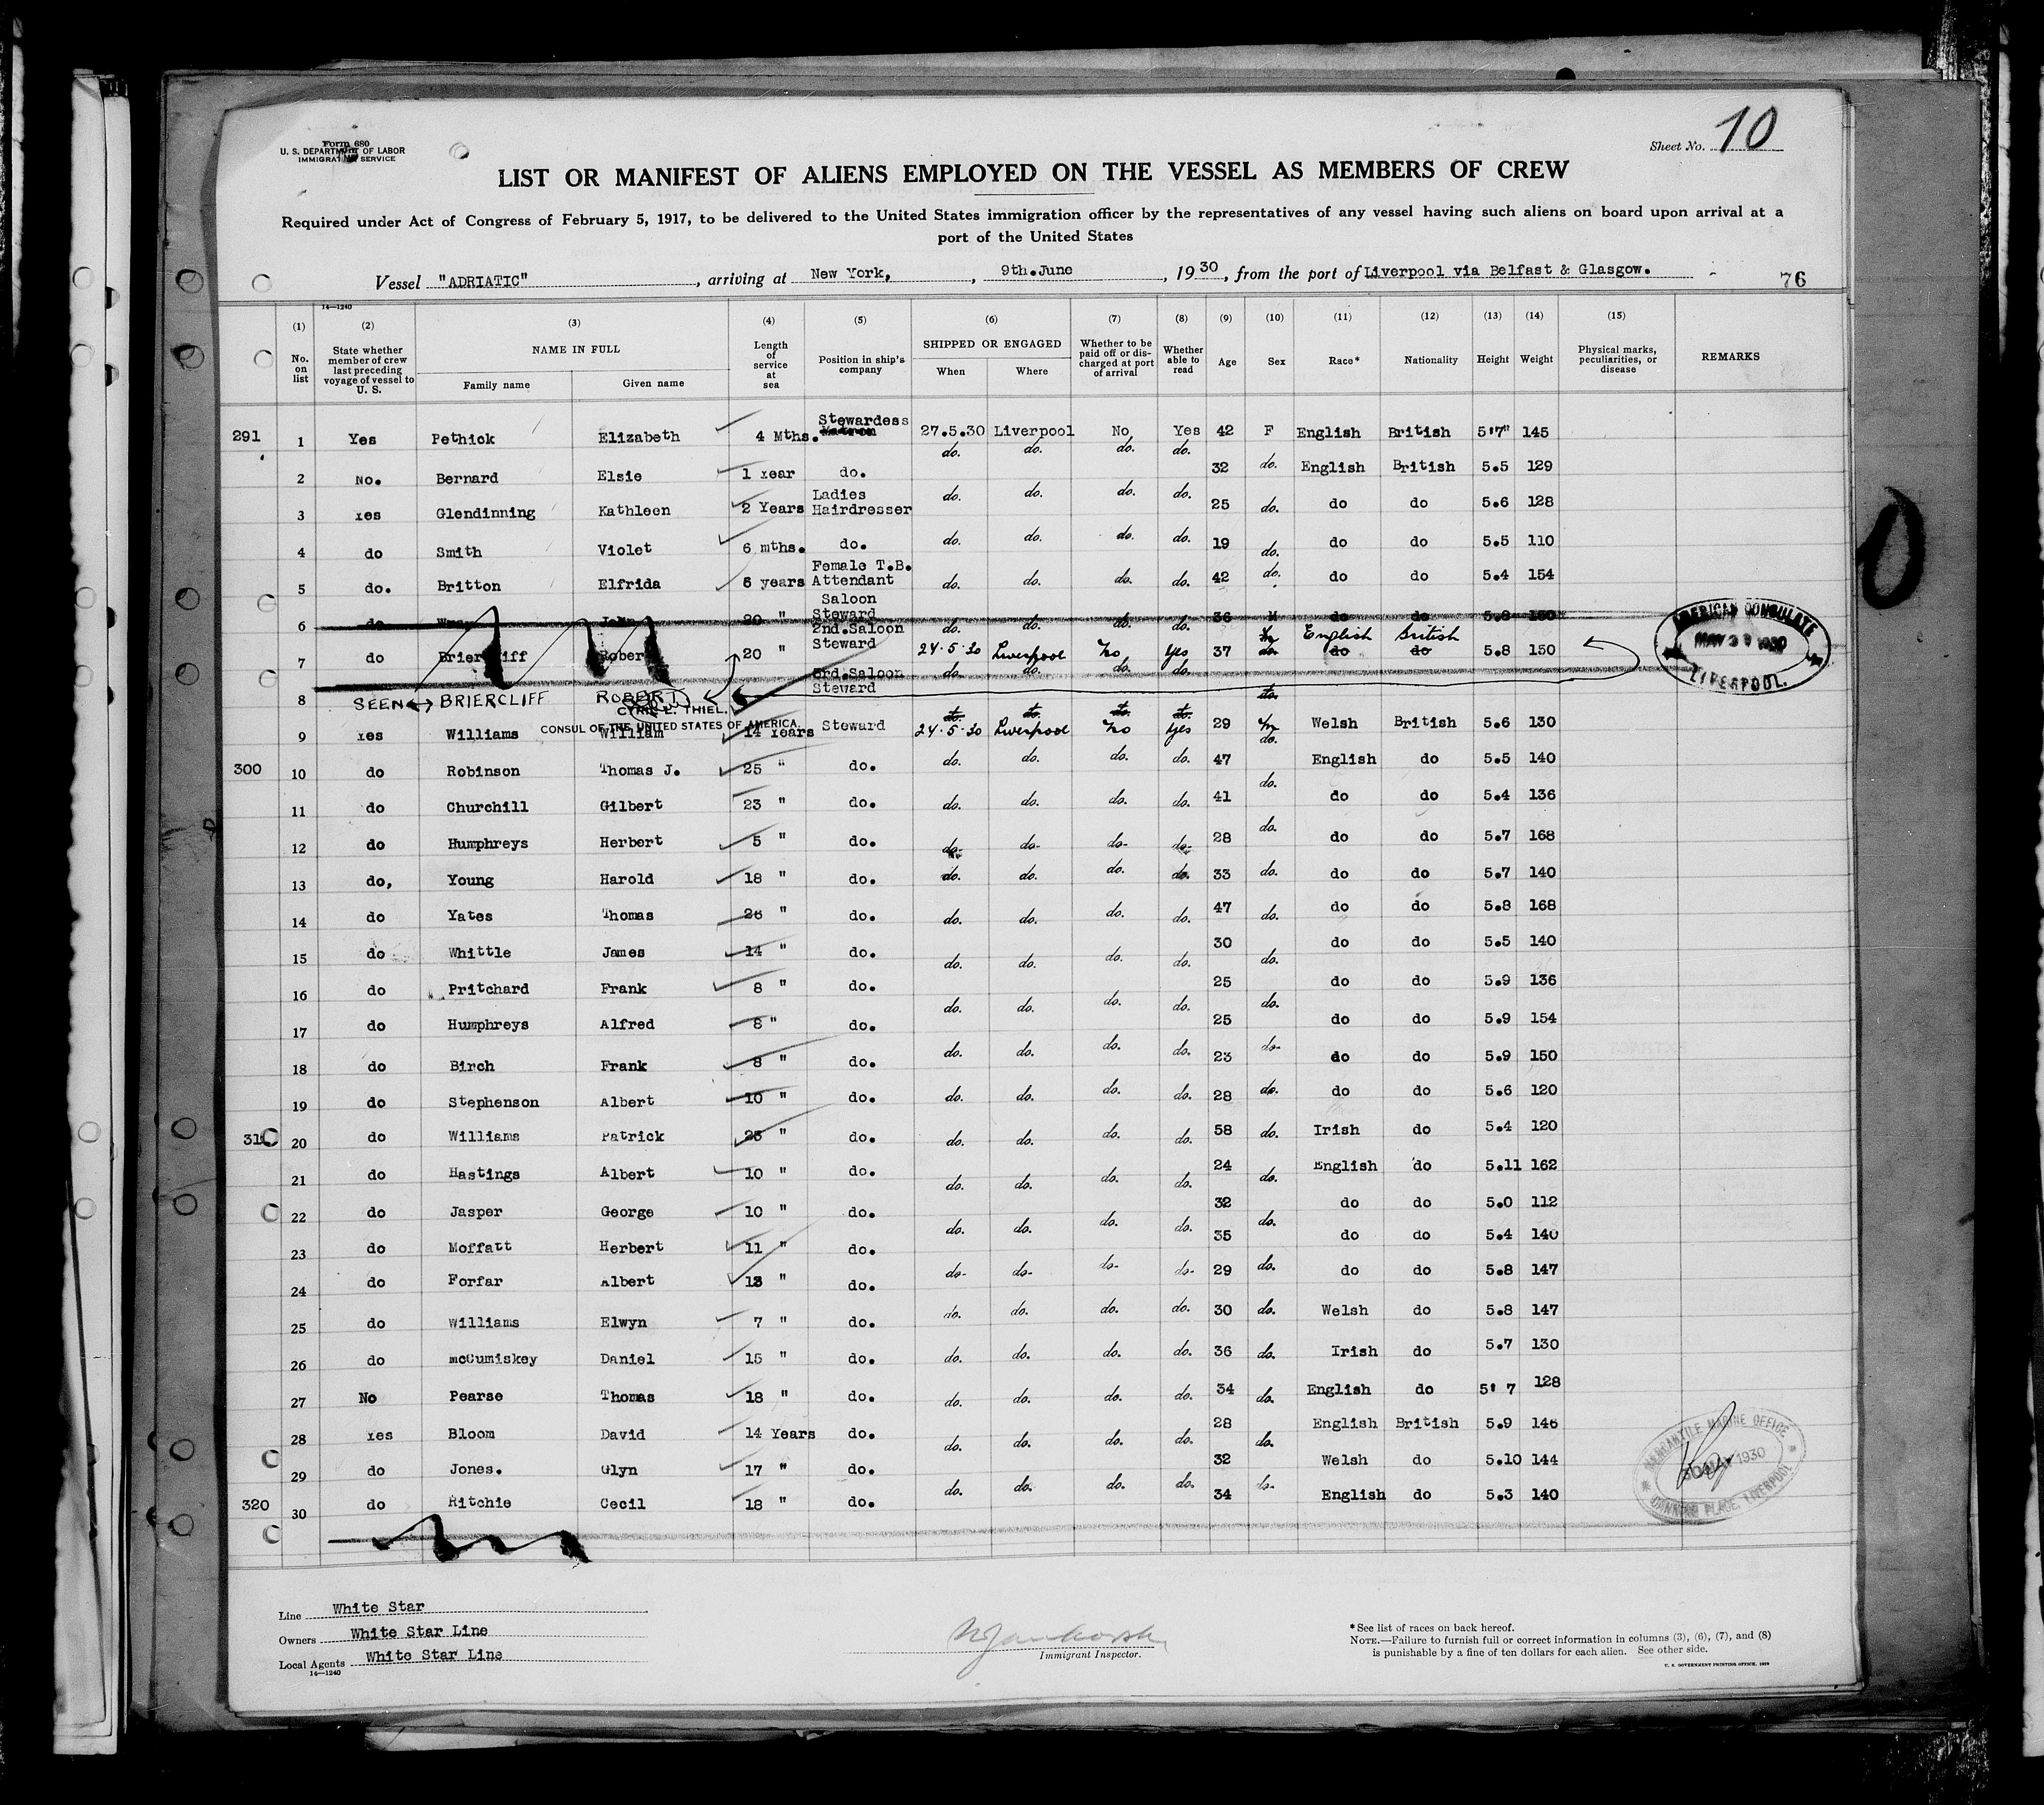 Form 680
U. S. DEPARTMENT OF LABOR
IMMIGRATION SERVICE
Sheet No. 10
LIST OR MANIFEST OF ALIENS EMPLOYED ON THE VESSEL AS MEMBERS OF CREW
Required under Act of Congress of February 5, 1917, to be delivered to the United States immigration officer by the representatives of any vessel having such aliens on board upon arrival at a
port of the United States
Vessel "ADRIATIC", arriving at New York, , 9th.June, 1930, from the port of Liverpool via Belfast & Glasgow.
76
14—1240
(1) (2) (3) (4) (5) (6) (7) (8) (9) (10) (11) (12) (13) (14) (15)
No. on list | State whether member of crew last preceding voyage of vessel to U. S. | NAME IN FULL | Family name | Given name | Length of service at sea | Position in ship's company | SHIPPED OR ENGAGED | When | Where | Whether to be paid off or discharged at port of arrival | Whether able to read | Age | Sex | Race* | Nationality | Height | Weight | Physical marks, peculiarities, or disease | REMARKS
291 1 Yes Pethick Elizabeth 4 Mths. Stewardess 27.5.30 Liverpool No Yes 42 F English British 5'7" 145
2 No. Bernard Elsie 1 Year do. do. do. do. do. 32 do. English British 5.5 129
3 Yes Glendinning Kathleen 2 Years Ladies Hairdresser do. do. do. do. 25 do. do do 5.6 128
4 do Smith Violet 6 mths. do. do. do. do. do. 19 do. do do 5.5 110
5 do. Britton Elfrida 6 years Female T.B. Attendant do. do. do. do. 42 do. do do 5.4 154
6 do John 20 " Saloon Steward do. do. do. do. 36 M do do 5.8 150
7 do Briercliff Robert 20 " 2nd.Saloon Steward 24.5.30 Liverpool No Yes 37 do. English British do do 5.8 150
8 3rd.Saloon Steward do. do. do. do.
SEEN BRIERCLIFF ROBERT
CYRIL L. THIEL.
CONSUL OF THE UNITED STATES OF AMERICA
AMERICAN CONSULATE
LIVERPOOL.
9 Yes Williams William 14 Years Steward 24.5.30 Liverpool No Yes 29 M Welsh British 5.6 130
300 10 do Robinson Thomas J. 25 " do. do. do. do. do. 47 do. English do 5.5 140
11 do Churchill Gilbert 23 " do. do. do. do. do. 41 do. do do 5.4 136
12 do Humphreys Herbert 5 " do. do. do. do. do. 28 do. do do 5.7 168
13 do, Young Harold 18 " do. do. do. do. do. 33 do. do do 5.7 140
14 do Yates Thomas 26 " do. do. do. do. do. 47 do. do do 5.8 168
15 do Whittle James 14 " do. do. do. do. do. 30 do. do do 5.5 140
16 do Pritchard Frank 8 " do. do. do. do. do. 25 do. do do 5.9 136
17 do Humphreys Alfred 8 " do. do. do. do. do. 25 do. do do 5.9 154
18 do Birch Frank 8 " do. do. do. do. do. 23 do. do do 5.9 150
19 do Stephenson Albert 10 " do. do. do. do. do. 28 do. do do 5.6 120
310 20 do Williams Patrick 25 " do. do. do. do. do. 58 do. Irish do 5.4 120
21 do Hastings Albert 10 " do. do. do. do. do. 24 do. English do 5.11 162
22 do Jasper George 10 " do. do. do. do. do. 32 do. do do 5.0 112
23 do Moffatt Herbert 11 " do. do. do. do. do. 35 do. do do 5.4 140
24 do Forfar Albert 13 " do. do. do. do. do. 29 do. do do 5.8 147
25 do Williams Elwyn 7 " do. do. do. do. do. 30 do. Welsh do 5.8 147
26 do McCumiskey Daniel 15 " do. do. do. do. do. 36 do. Irish do 5.7 130
27 No Pearse Thomas 18 " do. do. do. do. do. 34 do. English do 5' 7 128
28 Yes Bloom David 14 Years do. do. do. do. do. 28 do. English British 5.9 146
29 do Jones. Glyn 17 " do. 32 Welsh do 5.10 144
320 30 do Ritchie Cecil 18 " do. do. do. do. do. 34 do. English do 5.3 140
MERCANTILE MARINE OFFICE
1930
CANNING PLACE, LIVERPOOL
Line White Star
Owners White Star Line
Local Agents White Star Line
14—1240
Immigrant Inspector.
*See list of races on back hereof.
NOTE.—Failure to furnish full or correct information in columns (3), (6), (7), and (8)
is punishable by a fine of ten dollars for each alien. See other side.
U. S. GOVERNMENT PRINTING OFFICE. 1929